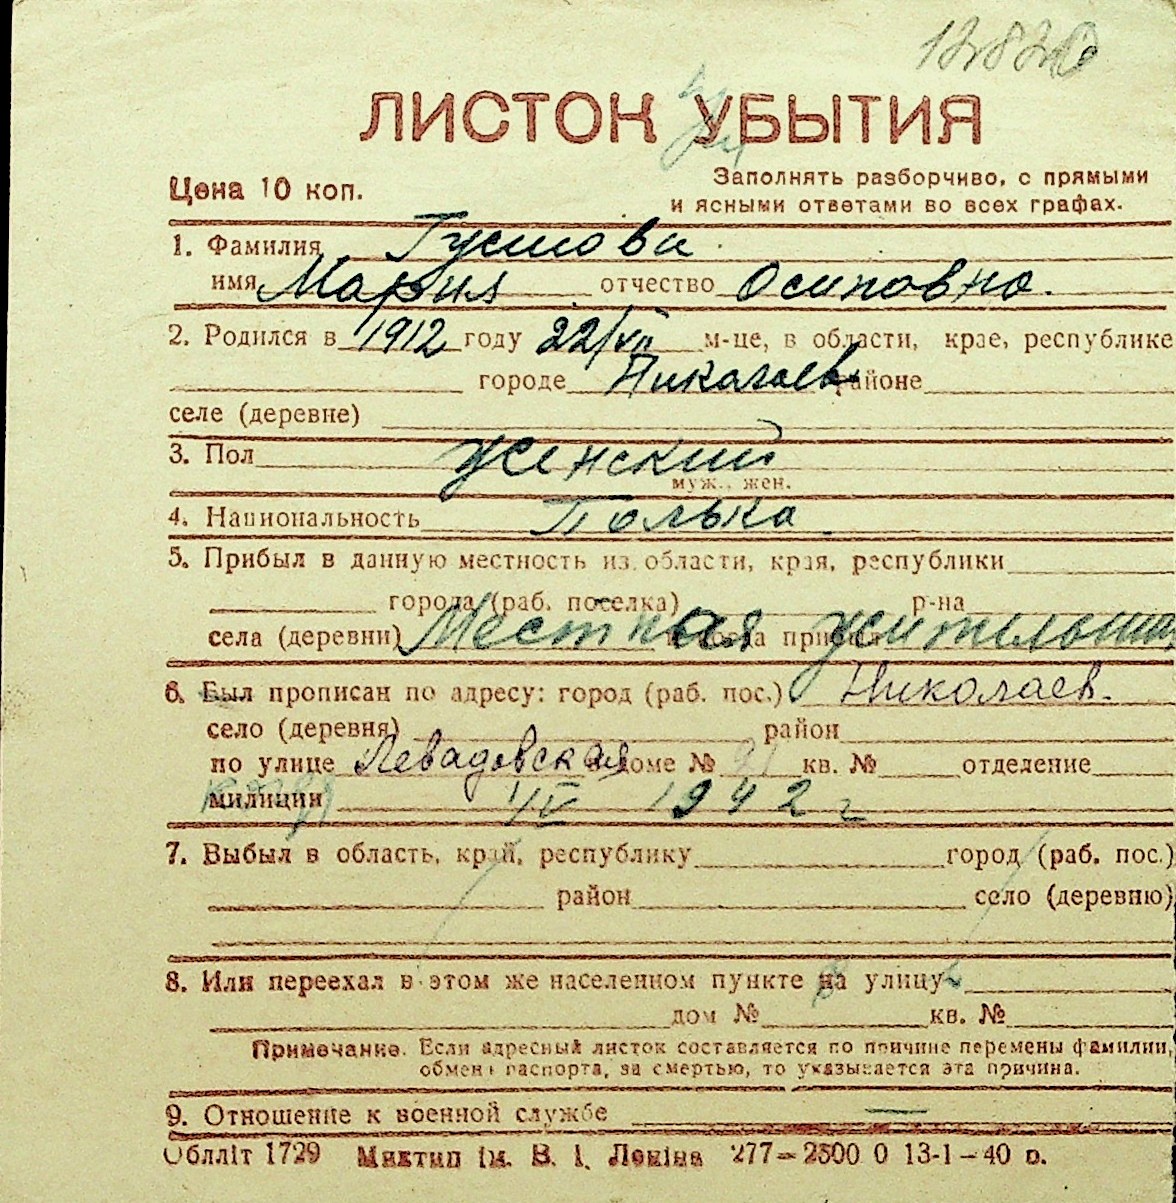 ЛИСТОК УБЫТИЯ
Цена 10 коп.
Заполнять разборчиво, с прямыми
и ясными ответами во всех графах.
1. Фамилия
имя Мария отчество Осиповна.
2. Родился в 1912 году 22/VII м-це, в области, крае, республике
городе Николаев районе
селе (деревне)
3. Пол женский
муж., жен.
4. Национальность Полька
5. Прибыл в данную местность из области, края, республики
города (раб. поселка) р-на
села (деревни) Местная жительница
6. Был прописан по адресу: город (раб. пос.) Николаев.
село (деревня) район
по улице Левадовская в доме № 91 кв. № отделение
милиции IV 1942 г
7. Выбыл в область, край, республику город (раб. пос.)
район село (деревню)
8. Или переехал в этом же населенном пункте на улицу
дом № кв. №
Примечание. Если адресный листок составляется по причине перемены фамилии,
обмена паспорта, за смертью, то указывается эта причина.
9. Отношение к военной службе —
Обллiт 1729 Миктип iм. В. I. Ленiна 277—2500 0 13-1—40 р.